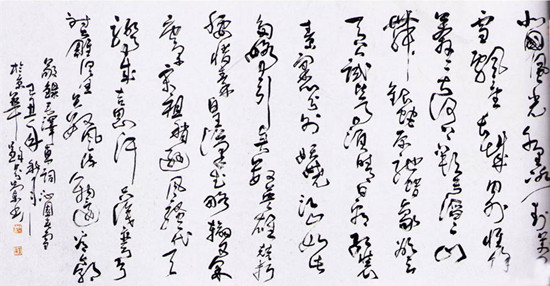 北國風光千里冰封萬
里雪飘望長城内外惟馀
莽莽大河上下顿失滔滔山
舞银蛇原驰蜡象欲与
天公试比高须晴日看红装
素裹分外妖娆江山如此
多娇引无数英雄竞折
腰惜秦皇汉武略输文采
唐宗宋祖稍逊风骚一代天
骄成吉思汗只识弯弓
射大雕俱往矣数风流人物还看今朝
敬録毛泽东词沁園春雪
己丑年秋月
於京華